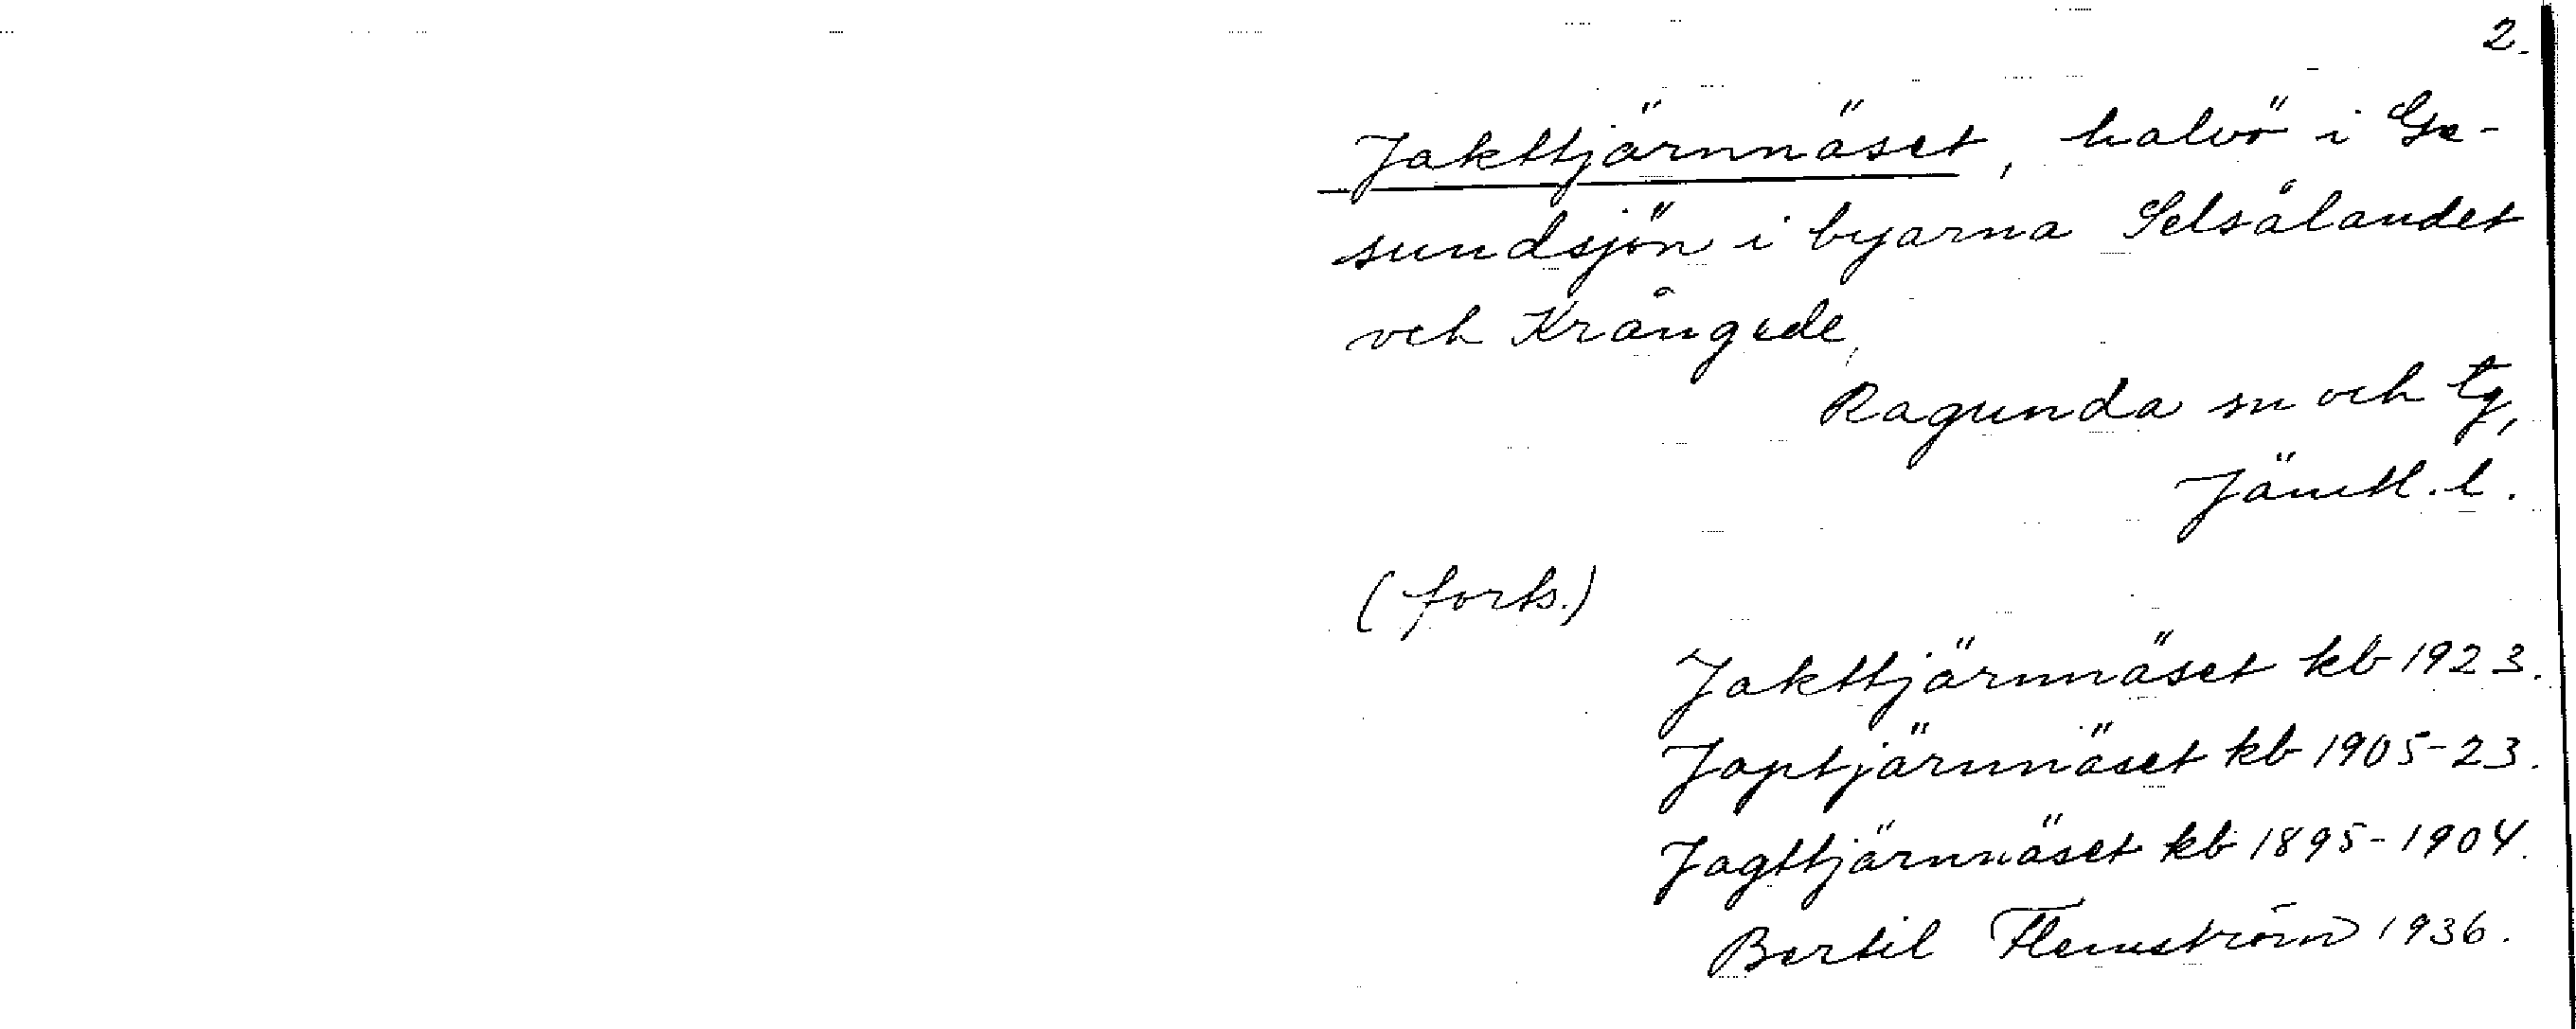 2.
Jakttjärnnäset, halvö i Ge-
sundsjön i byarna Selsålandet
och Krångede,
Ragunda sn och tg,
Jämtl. l.
(forts.)
Jakttjärnnäset kb 1923.
Japtjärnnäset kb 1905-23.
Jagttjärnnäset kb 1895-1904.
Bertil Flemström 1936.